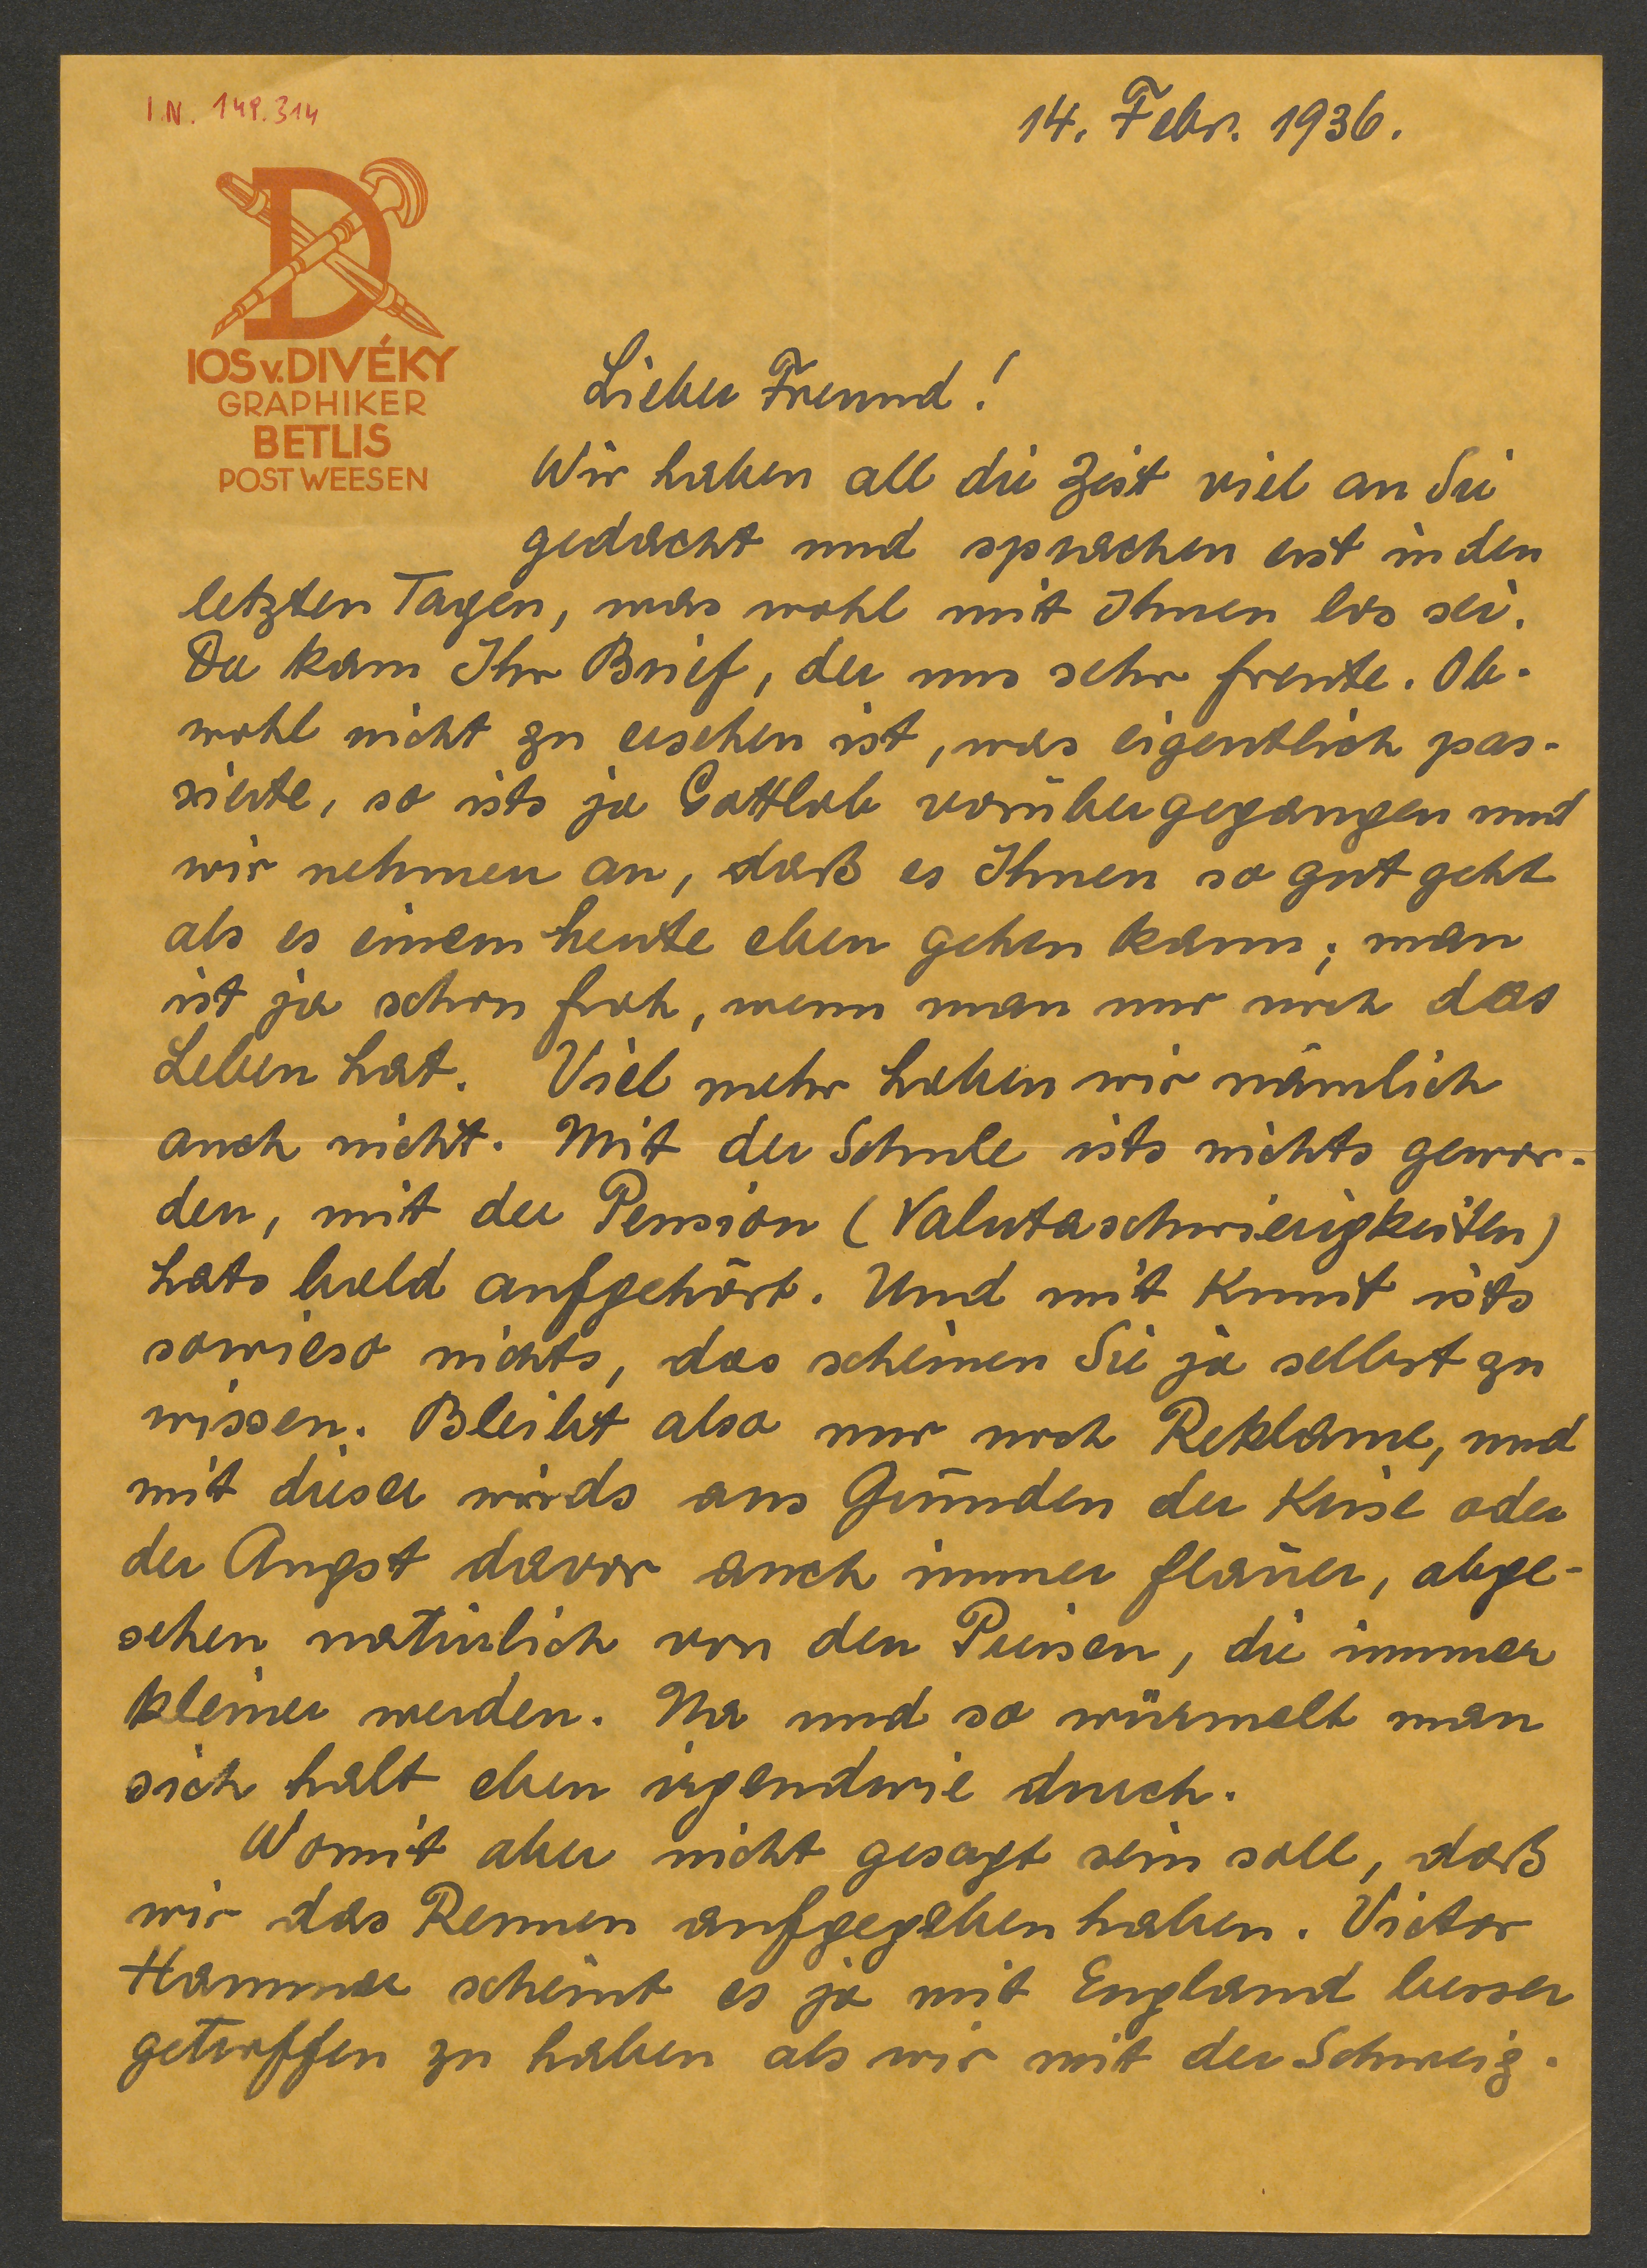 I.N. 149.314
14. Febr. 1936.
D
IOS v. DIVÉKY
GRAPHIKER
BETLIS
POST WEESEN
Lieber Freund!
Wir haben all die Zeit viel an Sie
gedacht und sprachen erst in den
letzten Tagen, was wohl mit Ihnen los sei.
Da kam Ihr Brief, der uns sehr freute. Ob-
wohl nicht zu ersehen ist, was eigentlich pas-
sierte, so ists ja Gottlob vorübergegangen und
wir nehmen an, daß es Ihnen so gut geht
als es einem heute eben gehen kann; man
ist ja schon froh, wenn man nur noch das
Leben hat. Viel mehr haben wir nämlich
auch nicht. Mit der Schule ists nichts gewor-
den, mit der Pension (Valutaschwierigkeiten)
hats bald aufgehört. Und mit Kunst ists
sowieso nichts, das scheinen Sie ja selbst zu
wissen. Bleibt also nur noch Reklame, und
mit dieser wirds aus Gründen der Krise oder
der Angst davor auch immer flauer, abge-
sehen natürlich von den Preisen, die immer
kleiner werden. Na und so würmelt man
sich halt eben irgendwie durch.
Womit aber nicht gesagt sein soll, daß
wir das Rennen aufgegeben haben. Victor
Hammer scheint es ja mit England besser
getroffen zu haben als wir mit der Schweiz.